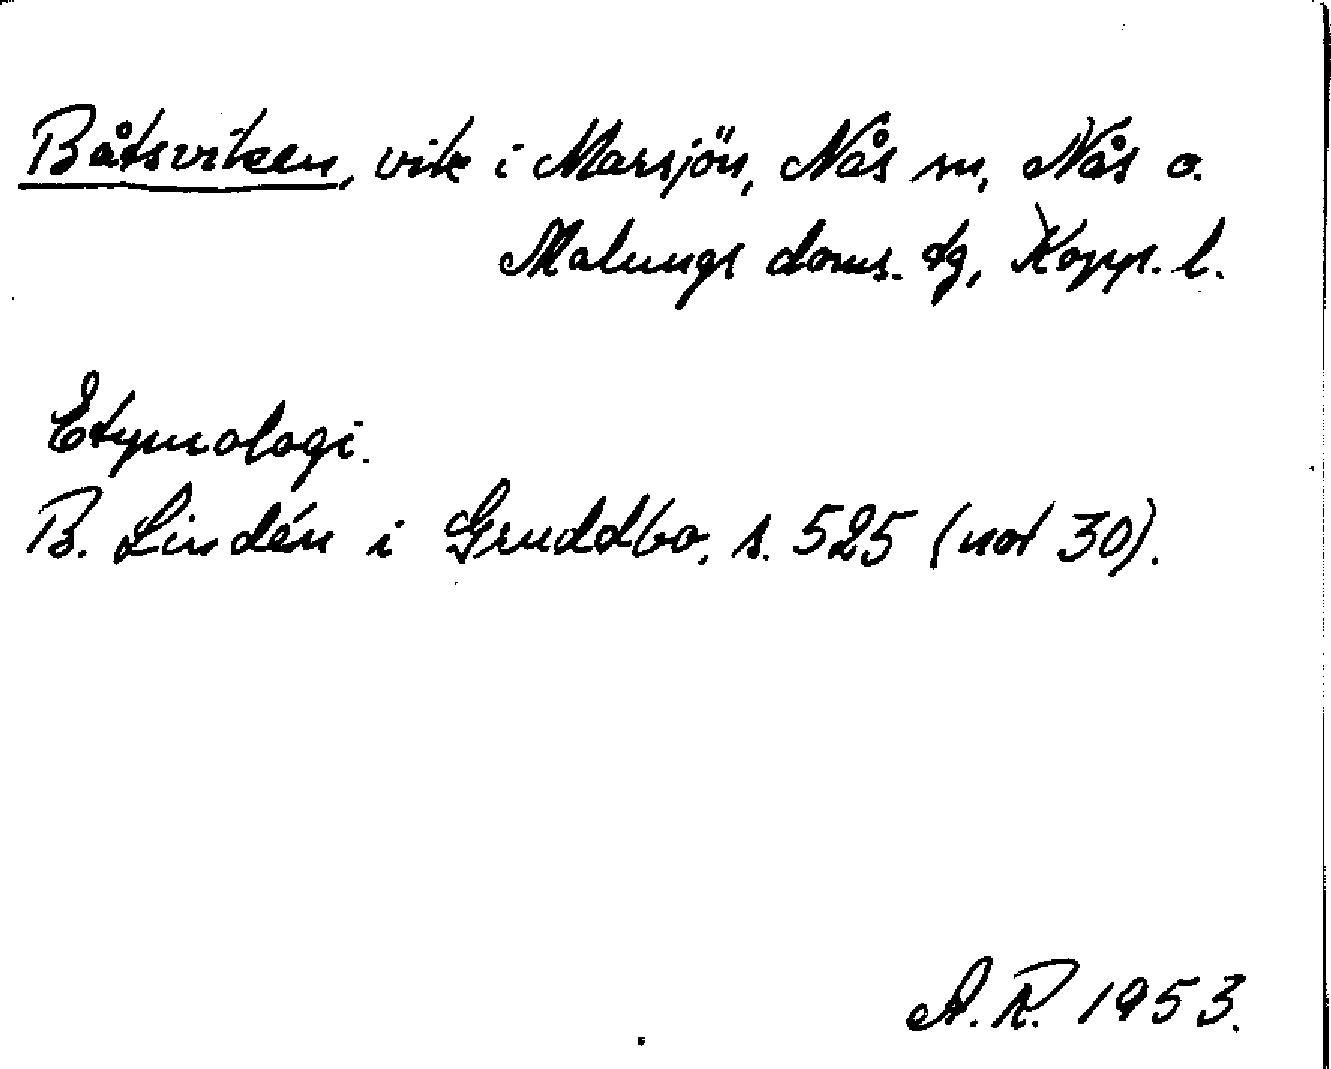 Båtsviken, vik i Marsjön, Nås sn, Nås o.
Malungs doms. tg, Kopp. l.
Etymologi.
B. Lindén i Gruddbo, s. 525 (not 30).
A.R. 1953.